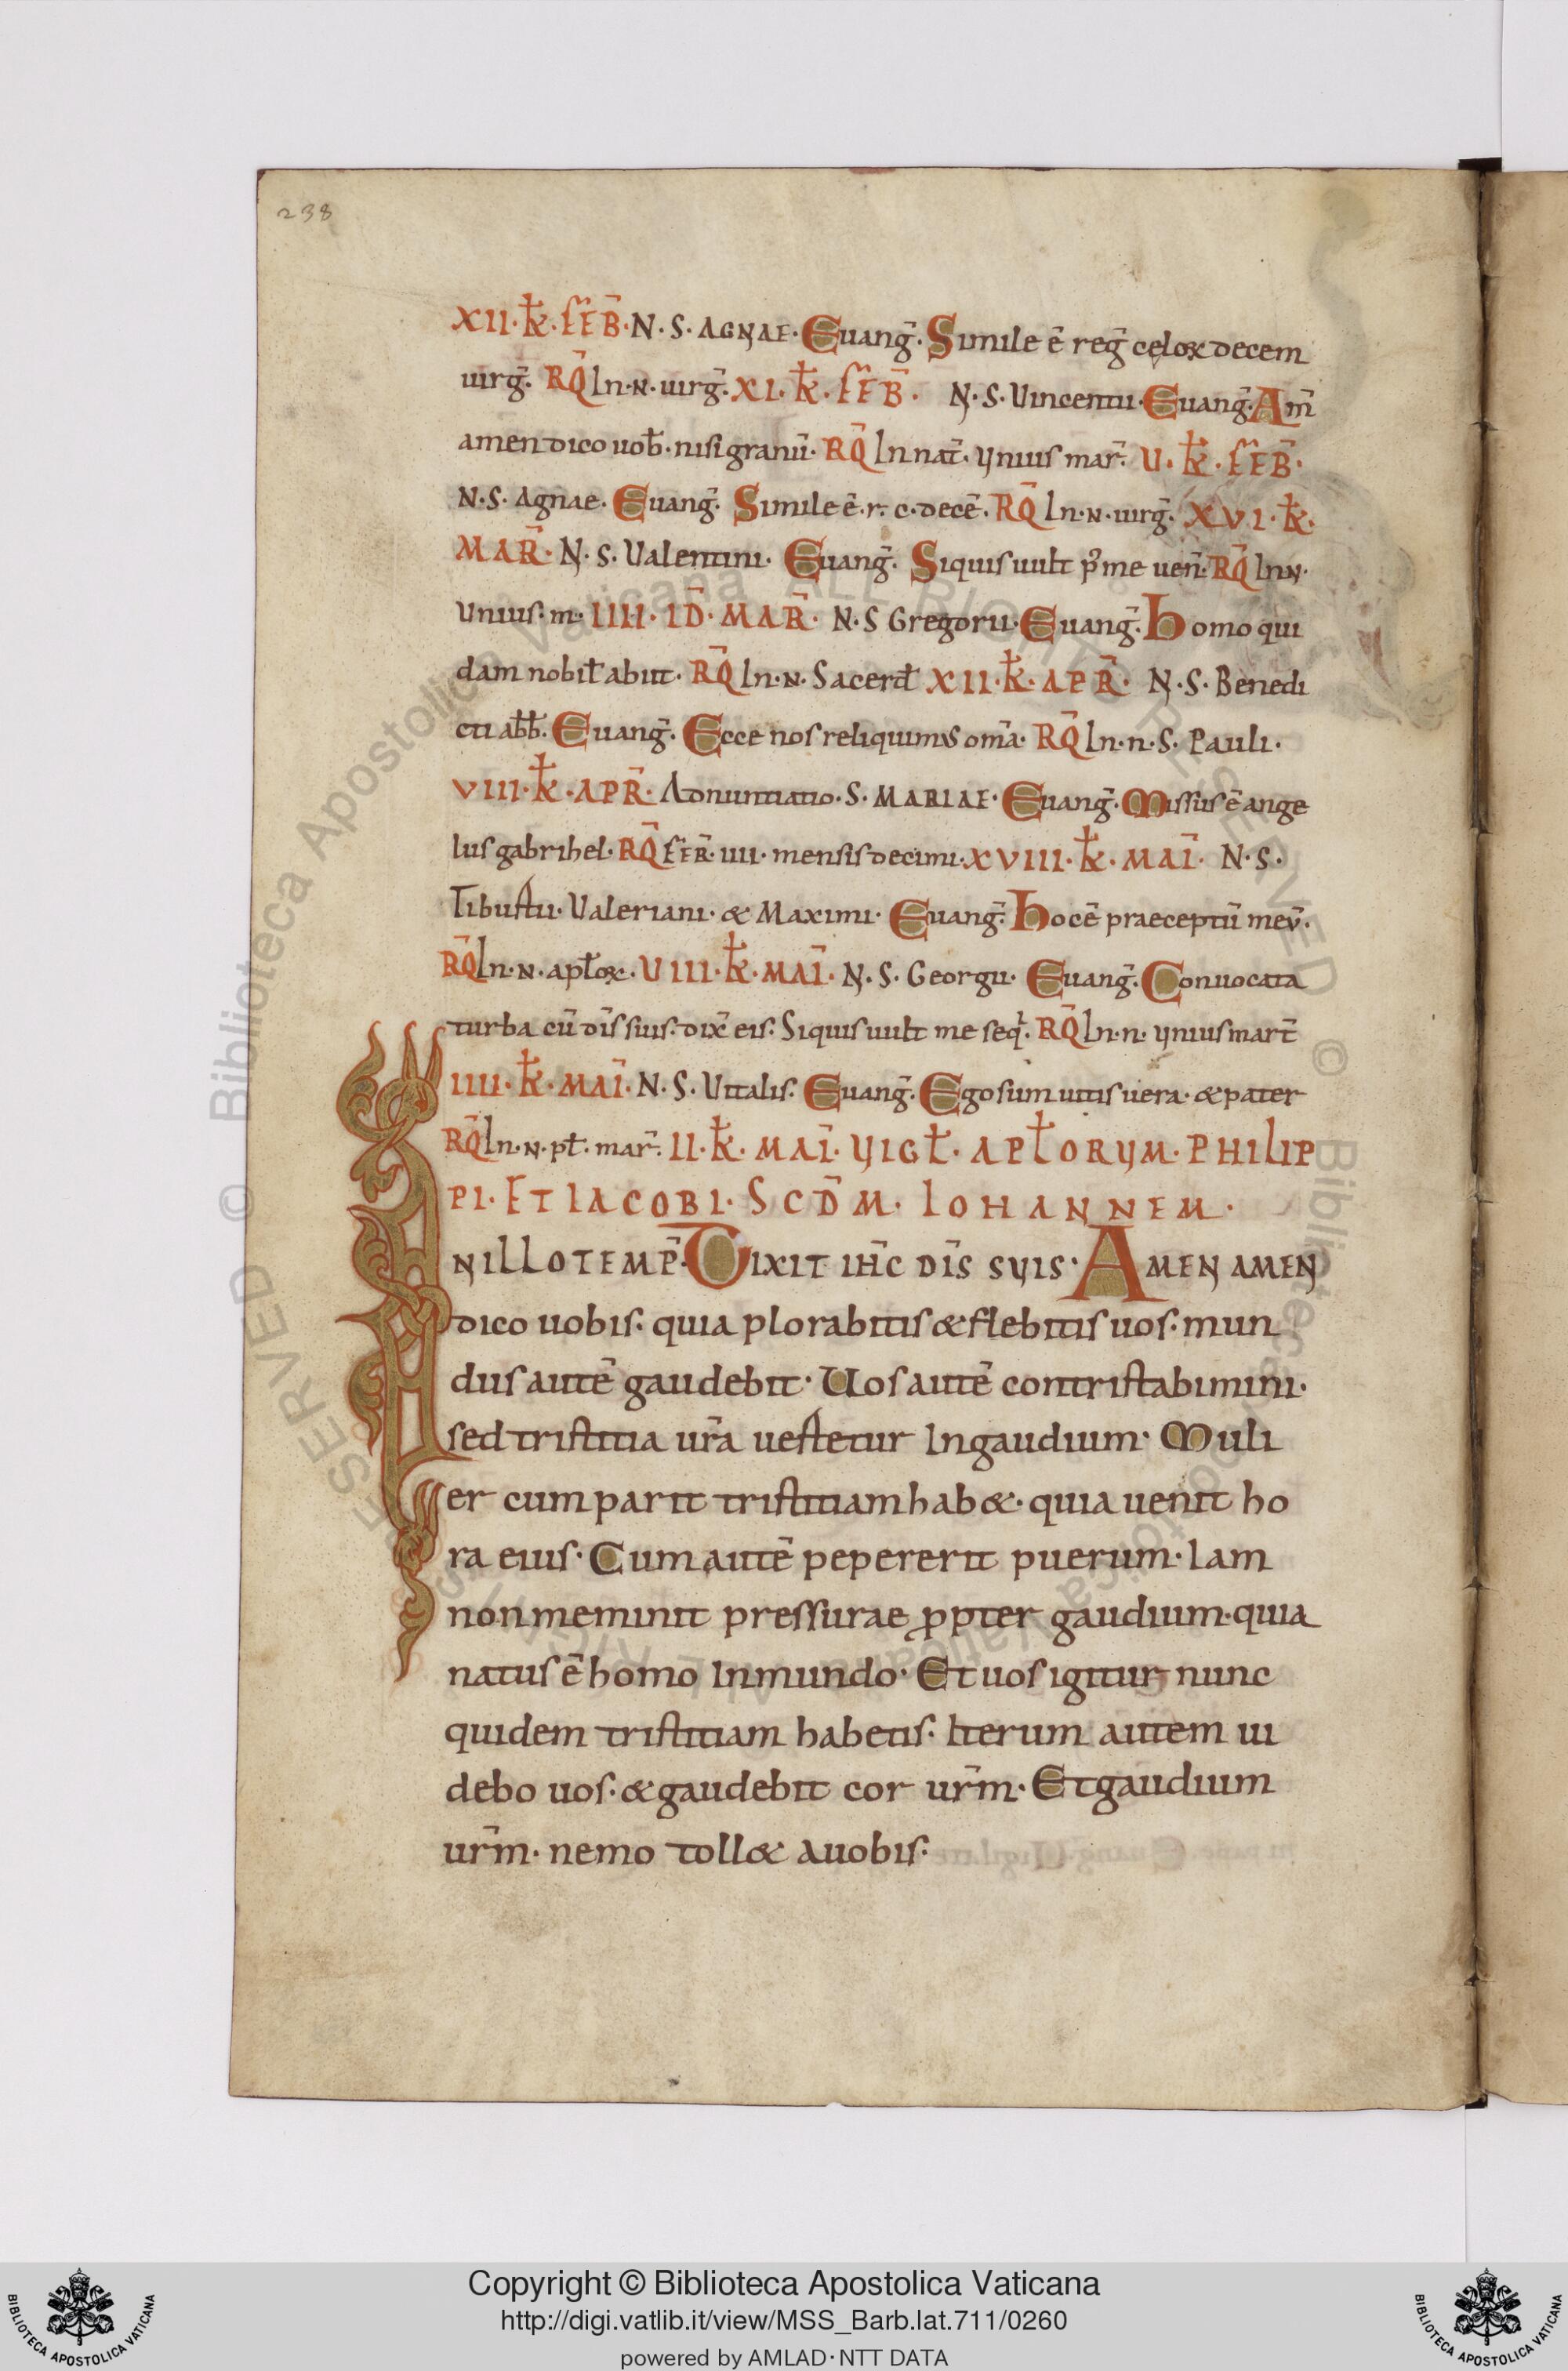 238
XII·k̄·FEB̄·N·S·AGNAE·Euang̅·Simile ē reg̅ cęloꝝ decem
uirg̅· RQ̄ In·N·uirg̅·XI·k̄·FEB̄· N·S·Uincentii·Euang̅·Am̅
amen dico uob̅·nisi granū· RQ̄ In nat̅·Unius mar̅· U·k̄·FEB̄·
N·S·Agnae·Euang̅· Simile ē·r·c·decē·RQ̄ In·N·uirg̅· XVI·k̄·
MAR̄·N·S·Ualentini· Euang̅· Siquis uult p̾ me uen̅·RQ̄ In N·
Unius·m·IIII·ID̄·MAR̄· N·S Gregorii·Euang̅·Homo qui
dam nobil̅ abiit· RQ̄ In·N·Sacerd̅ XII·k̄·APR̄· N·S·Benedi
cti abb̅·Euang̅· Ecce nos reliquimus om̅a· RQ̄ In·n·S·Pauli·
VIII·k̄·APR̄·Adnuntiatio·S·MARIAE·Euang̅·Missus ē ange
lus gabrihel·RQ̄ FER̄·IIII·mensis decimi·XVIII·k̄·MAĪ· N·S·
Tiburtii·Ualeriani·& Maximi· Euang̅·Hoc ē praeceptū meū·
RQ̄ In·N·apl̅oꝝ·UIII·k̄·MAĪ·N·S·Georgii· Euang̅·Convocata
turba cū dis̅ suis·dix̅ eis·Siquis uult me seq̅·RQ̄ In·n·Unius mart̅
IIII·k̄·MAĪ·N·S·Uitalis·Euang̅·Ego sum uitis uera·& pater
RQ̄ In·N·pl̅·mar̅·II·k̄·MAĪ·UIGL̄·APL̄ORUM·PHILIP
PI·ET IACOBI·SCD̄M·IOHANNEM·
IN ILLO TEMP̄·DIXIT IH̄C DIS̄ SUIS·AMEN AMEN
dico uobis·quia plorabitis & flebitis uos·mun
dus autē gaudebit·Uos autē contristabimini·
sed tristitia ur̅a uertetur In gaudium·Muli
er cum parit tristitiam hab&·quia uenit ho
ra eius·Cum autē pepererit puerum·Iam
non meminit pressurae ꝓpter gaudium·quia
natus ē homo In mundo·Et uos igitur nunc
quidem tristitiam habetis·Iterum autem ui
debo uos·& gaudebit cor ur̅m·Et gaudium
ur̅m·nemo toll& a uobis·
Copyright © Biblioteca Apostolica Vaticana
http://digi.vatlib.it/view/MSS_Barb.lat.711/0260
powered by AMLAD·NTT DATA
BIBLIOTECA APOSTOLICA VATICANA
BIBLIOTECA APOSTOLICA VATICANA